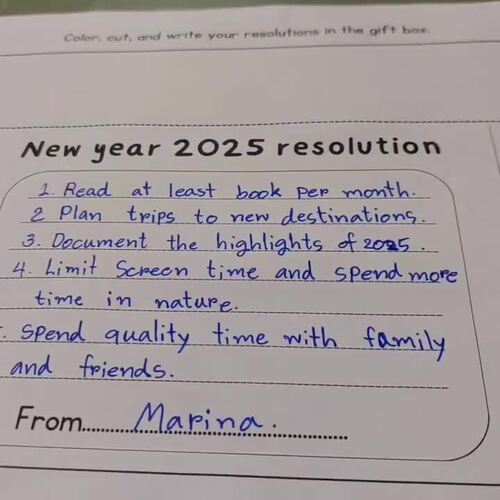 Color, cut, and write your resolutions in the gift box.
New year 2025 resolution
1. Read at least book per month.
2 Plan trips to new destinations.
3. Document the highlights of 2025.
4. Limit Screen time and spend more
time in nature.
. spend quality time with family
and friends.
From........Marina.